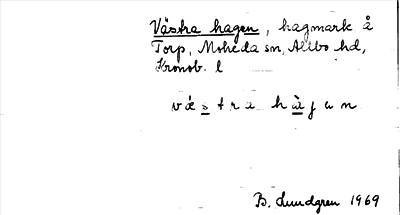 Västra hagen, hagmark å
Torp, Moheda sn, Allbo hd,
Kronob. l
væ̀stra hàgan
B. Lundgren 1969